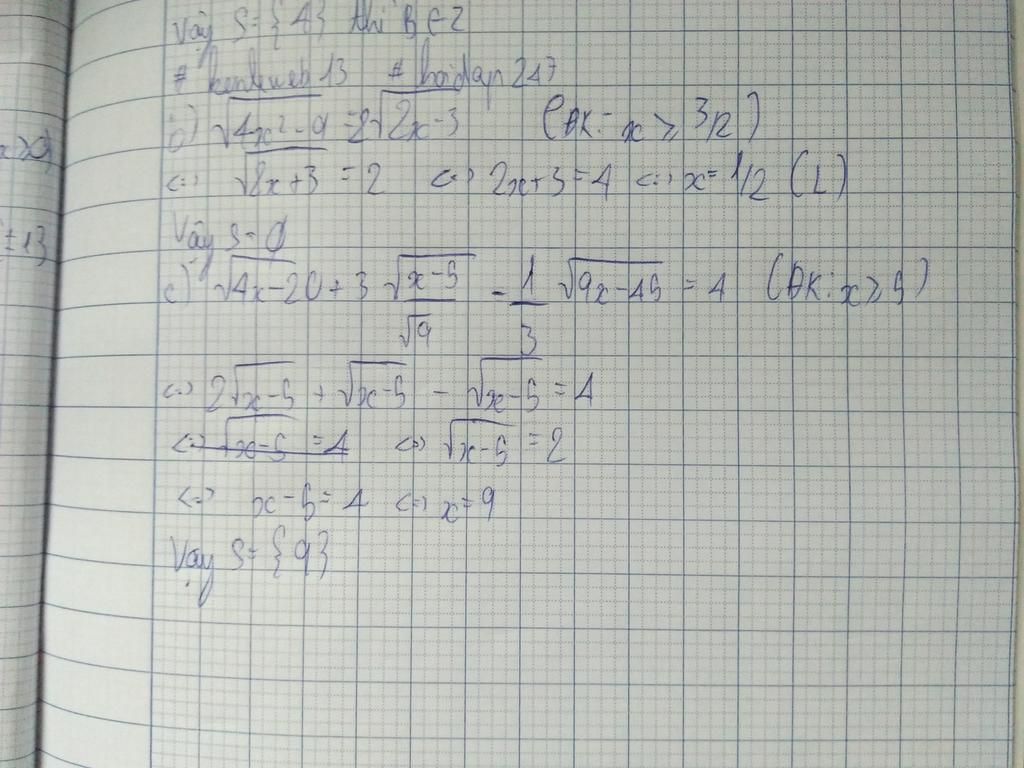 Vậy S = {4} thì B ∈ Z
# kendeweb13 # hoidap247
b) √4x² - 9 = 2√2x - 3 (ĐK: x ≥ 3/2)
<=> √2x+3 = 2 <=> 2x+3 = 4 <=> x = 1/2 (L)
Vậy S = ∅
c) √4x-20 + 3 √x-5/√9 - 1/3 √9x-45 = 4 (ĐK: x ≥ 5)
<=> 2√x-5 + √x-5 - √x-5 = 4
<=> √x-5 = 4 <=> √x-5 = 2
<=> x - 5 = 4 <=> x = 9
Vậy S = {9}